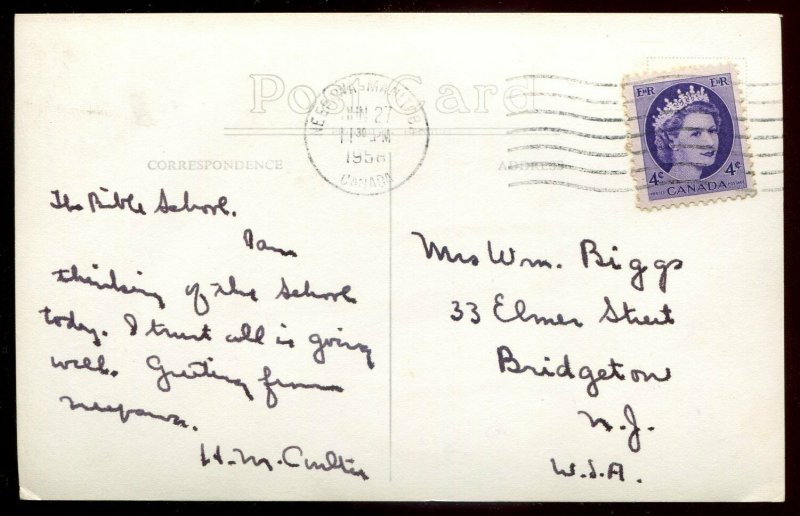 Post Card
MANITOBA
JAN 27
11 30 PM
1958
CANADA
EIIR EIIR
4¢ CANADA 4¢
CORRESPONDENCE
ADDRESS
The Bible School.
I am
thinking of the School
today. I trust all is going
well. Greeting from
Neepawa.
H. M. Coulter
Mrs Wm. Biggs
33 Elmer Street
Bridgeton
N. J.
U.S.A.